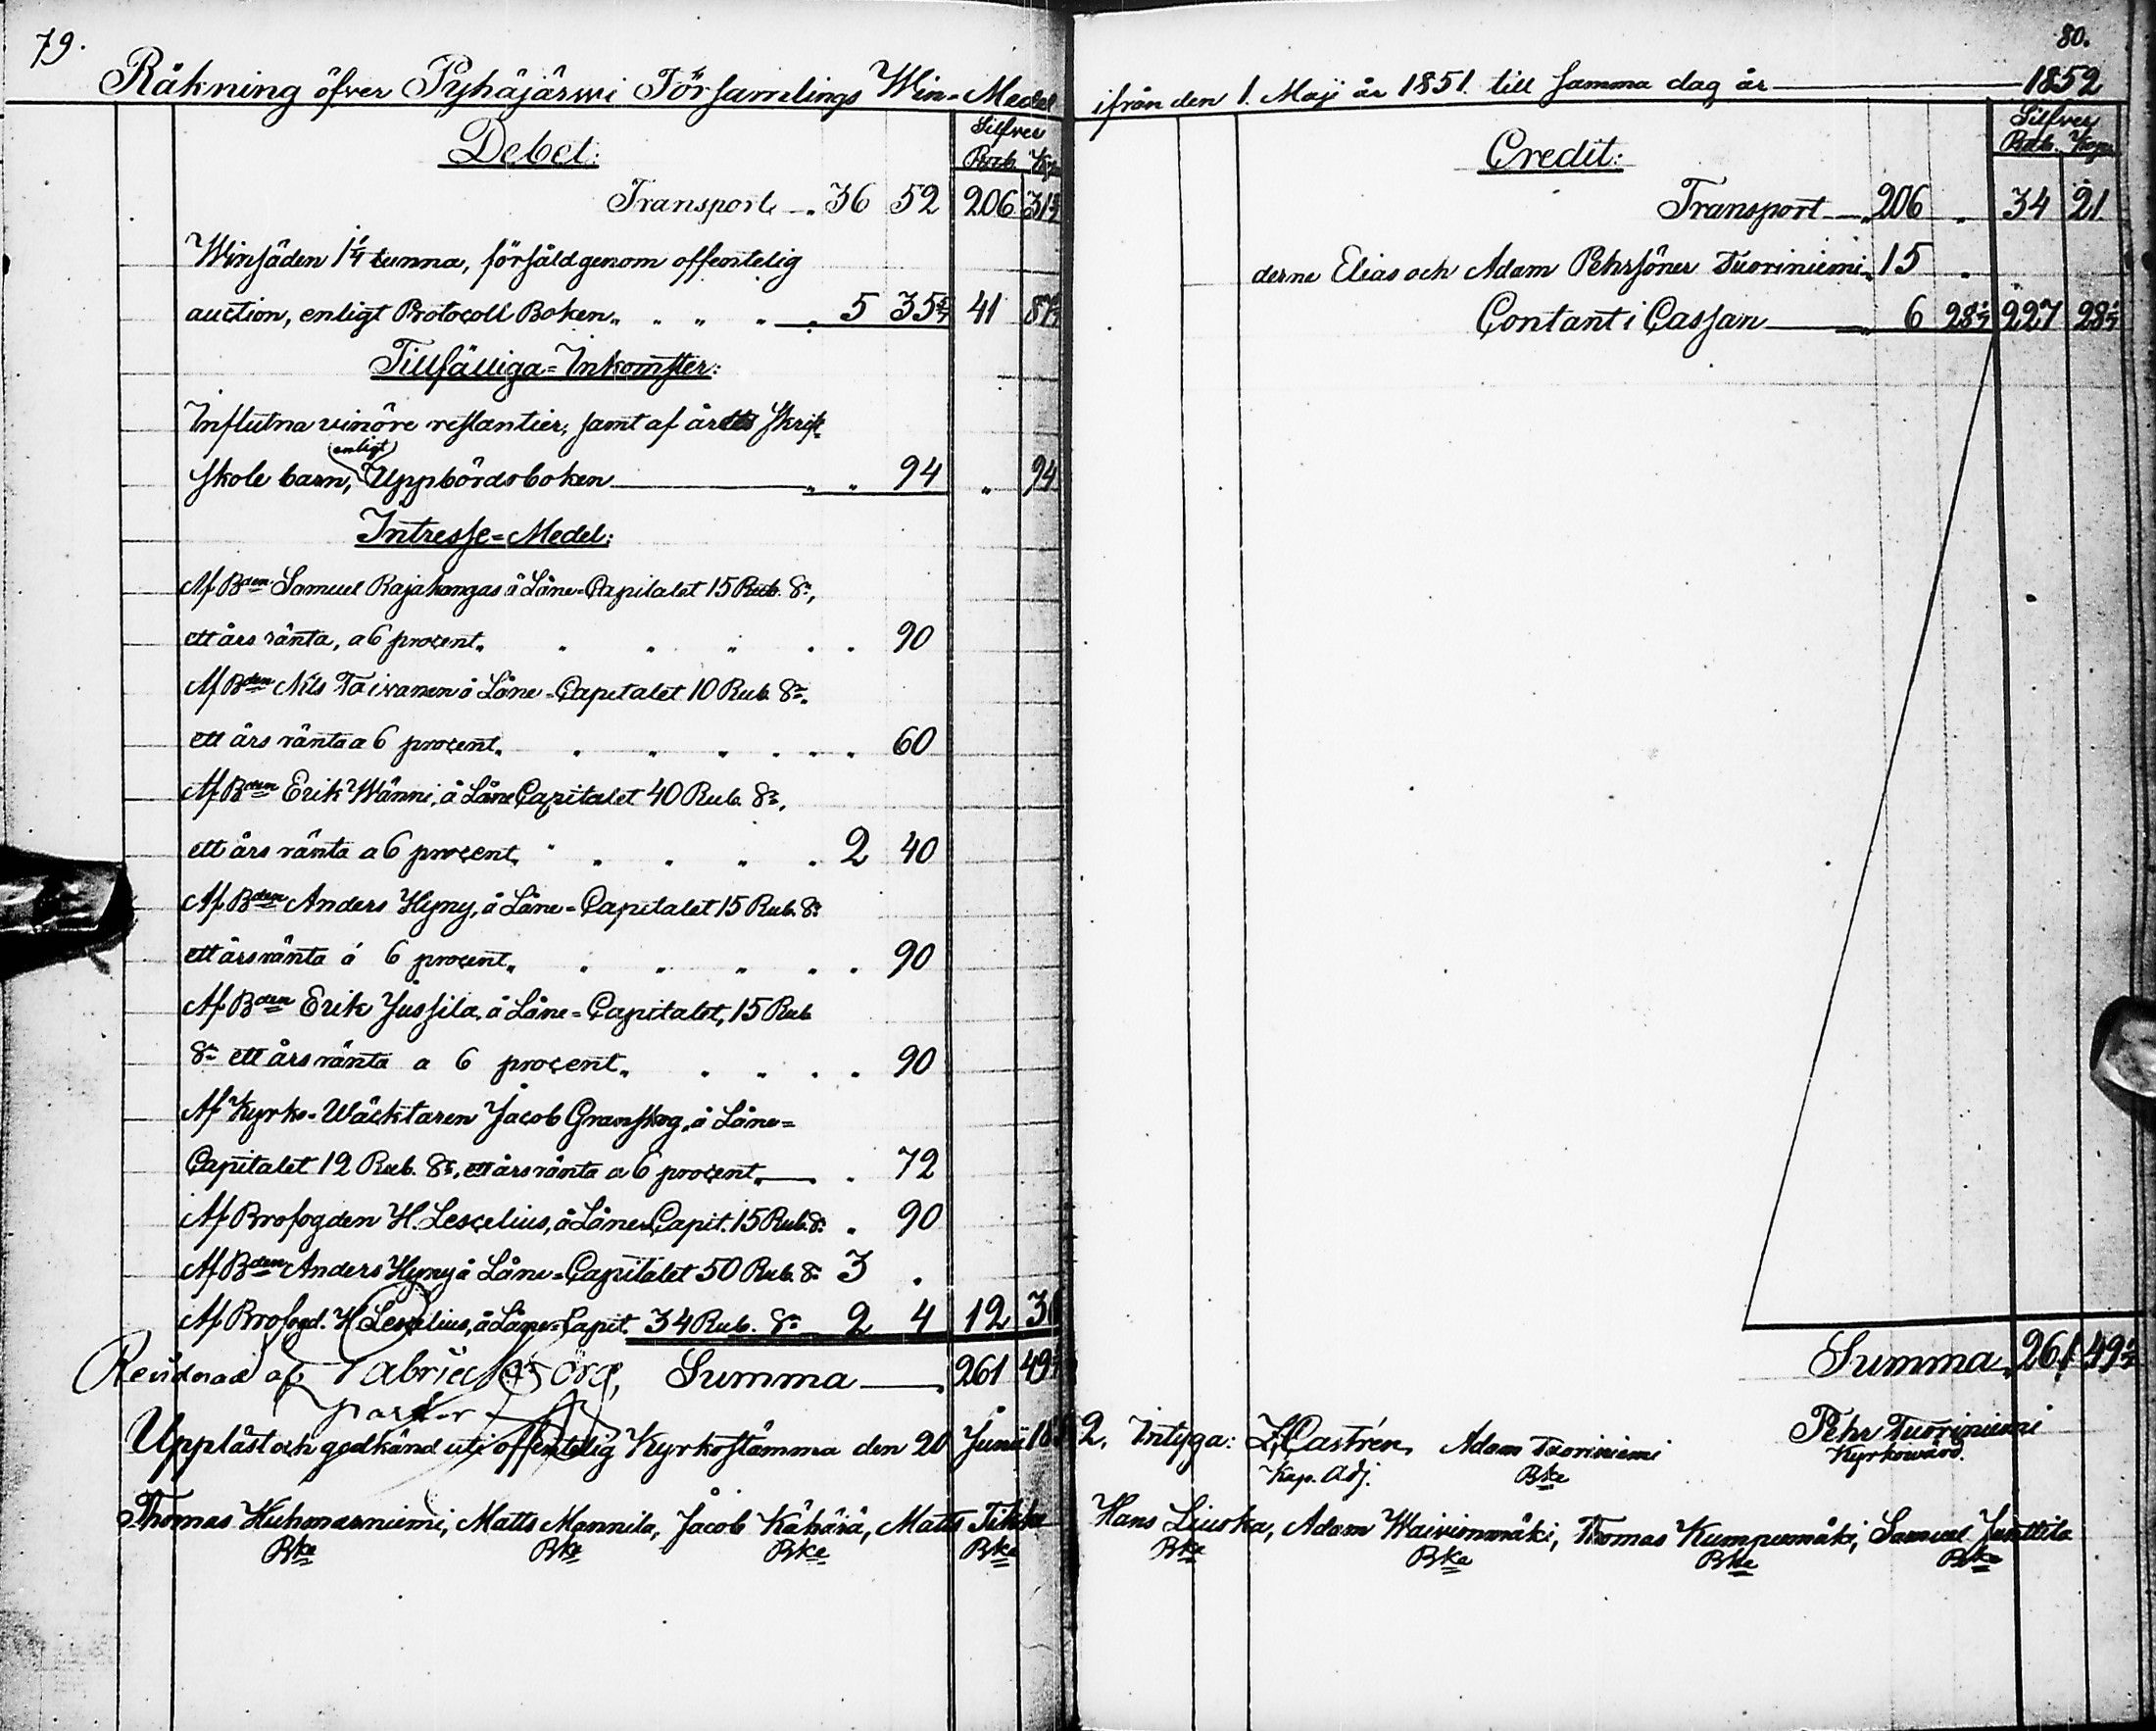 79.
Räkning öfver Pyhäjärwi Församlings Win-Medel
Debet:
Silfver
Rub. Kop.
Transport 36 52 206 31 5/7
Winsäden 1 1/4 tunna, försåld genom offentelig
auction, enligt Protocoll Boken 5 35 5/7 41 87 5/7
Tillfälliga-Inkomster:
Influtna vinöre restantier, samt af årets Skrift-
enligt
skole barn, Uppbördsboken 94 94
Intresse-Medel:
Af Bden Samuel Rajakangas å Låne-Capitalet 15 Rub. Sr,
ett års ränta, a 6 procent 90
Af Bden Nils Taivanen å Låne-Capitalet 10 Rub. Sr.
ett års ränta a 6 procent 60
Af Bden Erik Wänni, å Låne Capitalet 40 Rub. Sr,
ett års ränta a 6 procent 2 40
Af Bden Anders Hyny, å Låne-Capitalet 15 Rub. Sr
ett års ränta á 6 procent 90
Af Bden Erik Jussila, å Låne-Capitalet, 15 Rub
Sr ett års ränta a 6 procent 90
Af Kyrko-Wäcktaren Jacob Granskog, å Låne-
Capitalet 12 Rub. Sr, ett års ränta a 6 procent 72
Af Brofogden H. Lescelius, å Låne Capit. 15 Rub. Sr 90
Af Bden Anders Hyny å Låne-Capitalet 50 Rub. Sr 3
Af Brofogd. H Lescelius, å Låne-Capit. 34 Rub. Sr 2 4 12 36
Summa 261 49 3/7
Uppläst och godkänd uti offentelig Kyrkostämma den 20 Junii 185
Thomas Huhmarniemi, Matts Mannila, Jacob Kähärä, Matts Tikka
Bke Bke Bke Bke
80.
ifrån den 1. Maji år 1851. till samma dag år 1852
Credit:
Silfver
Rub. Kop.
Transport 206 34 21
derne Elias och Adam Pehrsöner Tuoriniemi 15
Contant i Cassan 6 28 3/7 227 28 3/7
Summa 261 49 3/7
2. Intyga: Z. Castrén, Adam Tuoriniemi Pehr Tuoriniemi
Kap. Adj. Bke Kyrkowärd.
Hans Liuska, Adam Waivionmäki, Thomas Kumpumäki, Samuel Junttila
Bke Bke Bke Bke